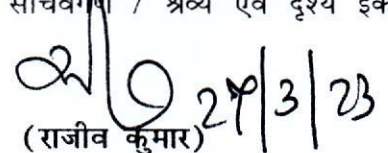 सचिवगण / श्रव्य एवं दृश्य इक
27/3/23
(राजीव कुमार)